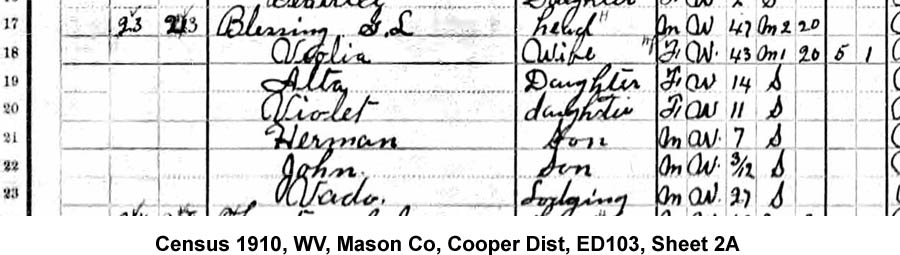 Daughter
17 23 213 Blessing S. L head M W 47 M2 20
18 Wife F W. 43 M1 20 5 1
19 Alta Daughter F W 14 S
20 Violet daughter F W 11 S
21 Herman Son M W. 7 S
22 John. Son M W. 3/12 S
23 Wado. Lodging M W. 27 S
Census 1910, WV, Mason Co, Cooper Dist, ED103, Sheet 2A